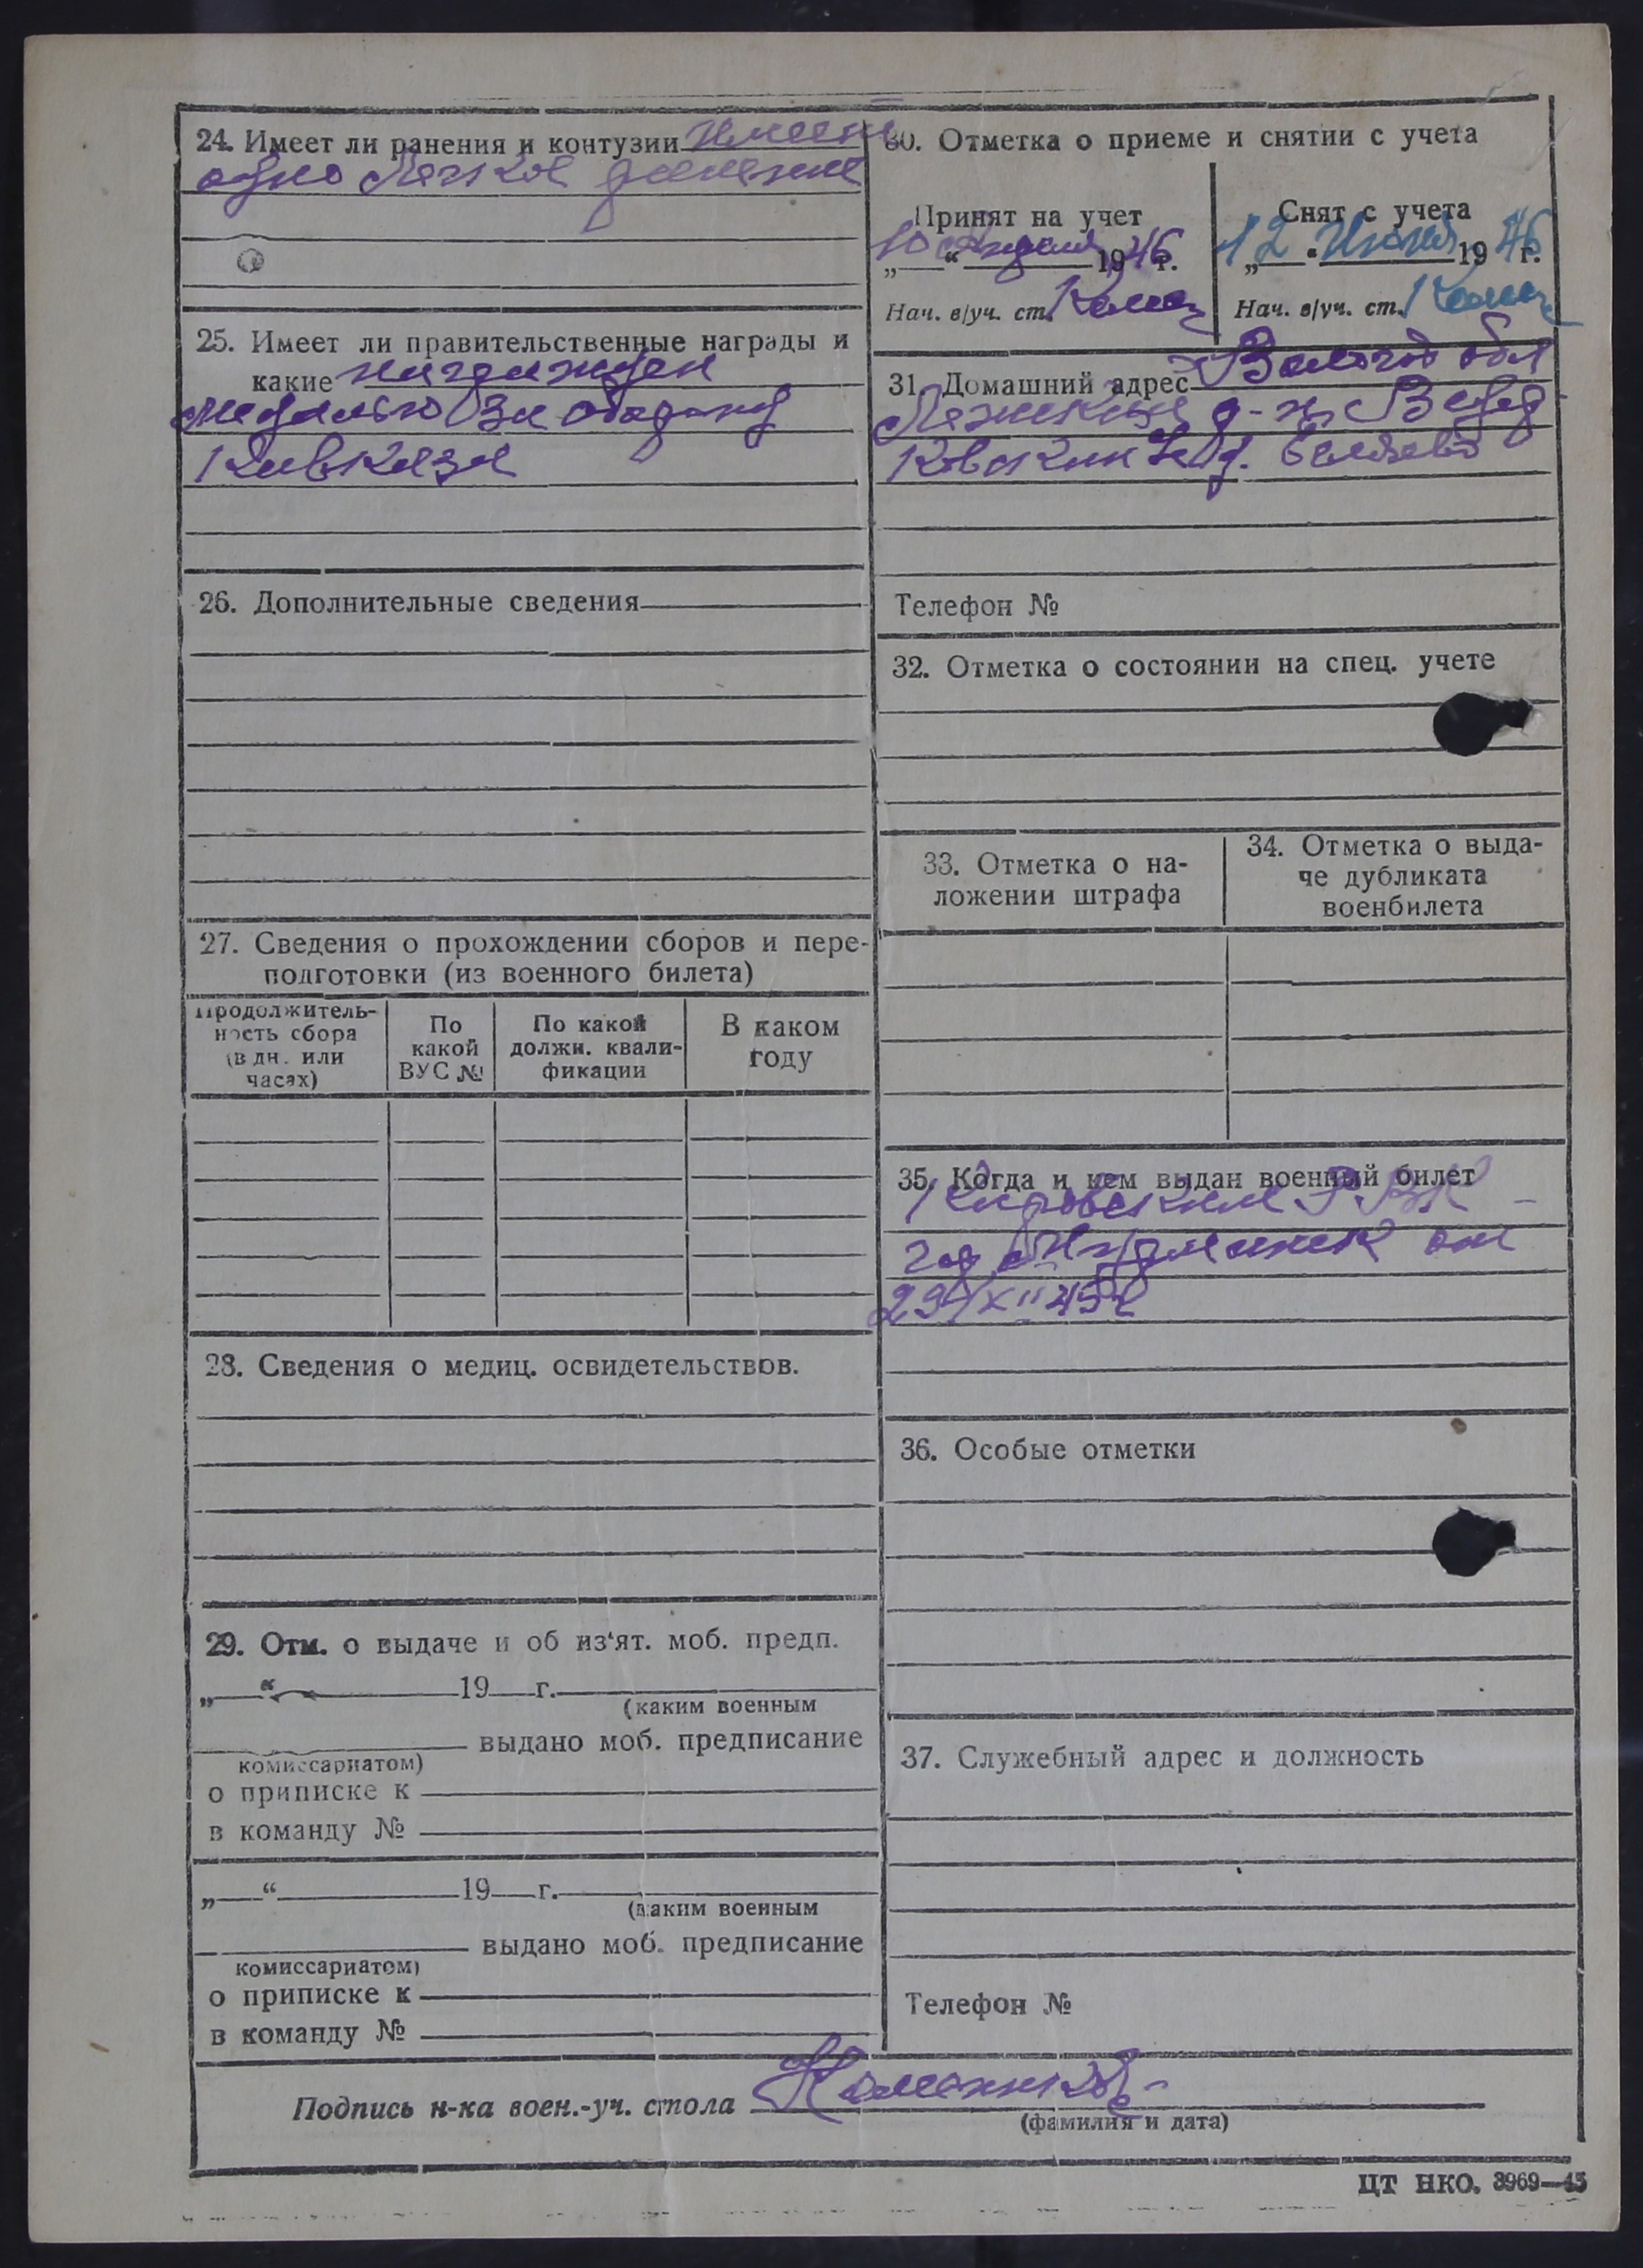 24. Имеет ли ранения и контузии имеет
одно легкое ранение
25. Имеет ли правительственные награды и
какие награжден
медалью За оборону
Кавказа
26. Дополнительные сведения
27. Сведения о прохождении сборов и пере-
подготовки (из военного билета)
Продолжитель-
ность сбора
(в дн. или
часах)
По
какой
ВУС №
По какой
должн. квали-
фикации
В каком
году
28. Сведения о медиц. освидетельствов.
29. Отм. о выдаче и об из‘ят. моб. предп.
„ “ 19 г.
(каким военным
выдано моб. предписание
комиссариатом)
о приписке к
в команду №
„ “ 19 г.
(каким военным
выдано моб. предписание
комиссариатом)
о приписке к
в команду №
30. Отметка о приеме и снятии с учета
Принят на учет
„10“ апреля 1946 г.
Нач. в/уч. ст.
Снят с учета
„12“ Июня 1946 г.
Нач. в/уч. ст.
31. Домашний адрес Вологод обл
Лежский р-н
д.
Телефон №
32. Отметка о состоянии на спец. учете
33. Отметка о на-
ложении штрафа
34. Отметка о выда-
че дубликата
военбилета
35. Когда и кем выдан военный билет
Кировским РВК
от
29/XII 45г
36. Особые отметки
37. Служебный адрес и должность
Телефон №
Подпись н-ка воен.-уч. стола
(фамилия и дата)
ЦТ НКО. 3969—45